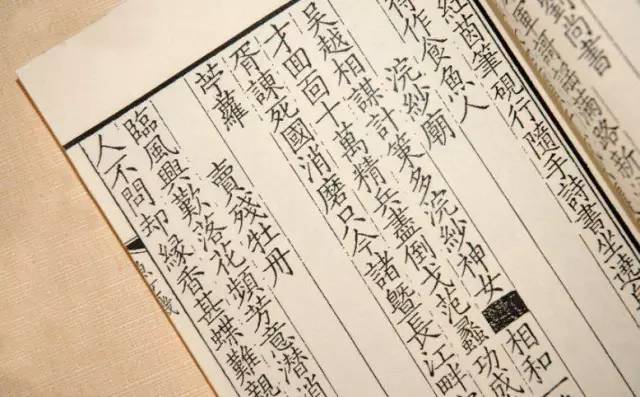 劉尚書
滿路新
紅茵筆硯行隨手詩書坐遶
得作食魚人
浣紗廟
吳越相謀計策多浣紗神女相和一
才回面十萬精兵盡倒戈范蠡功成
胥諫死國消磨只今諸曁長江畔
苧蘿
賣殘牡丹
臨風興歎落花頻芳意潛消
人不問却緣香甚蝶難親